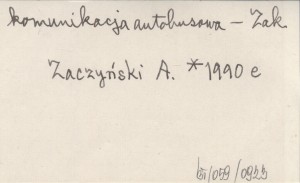 komunikacja autobusowa – Zak.
Zaczyński A. *1990 e
/059/0925